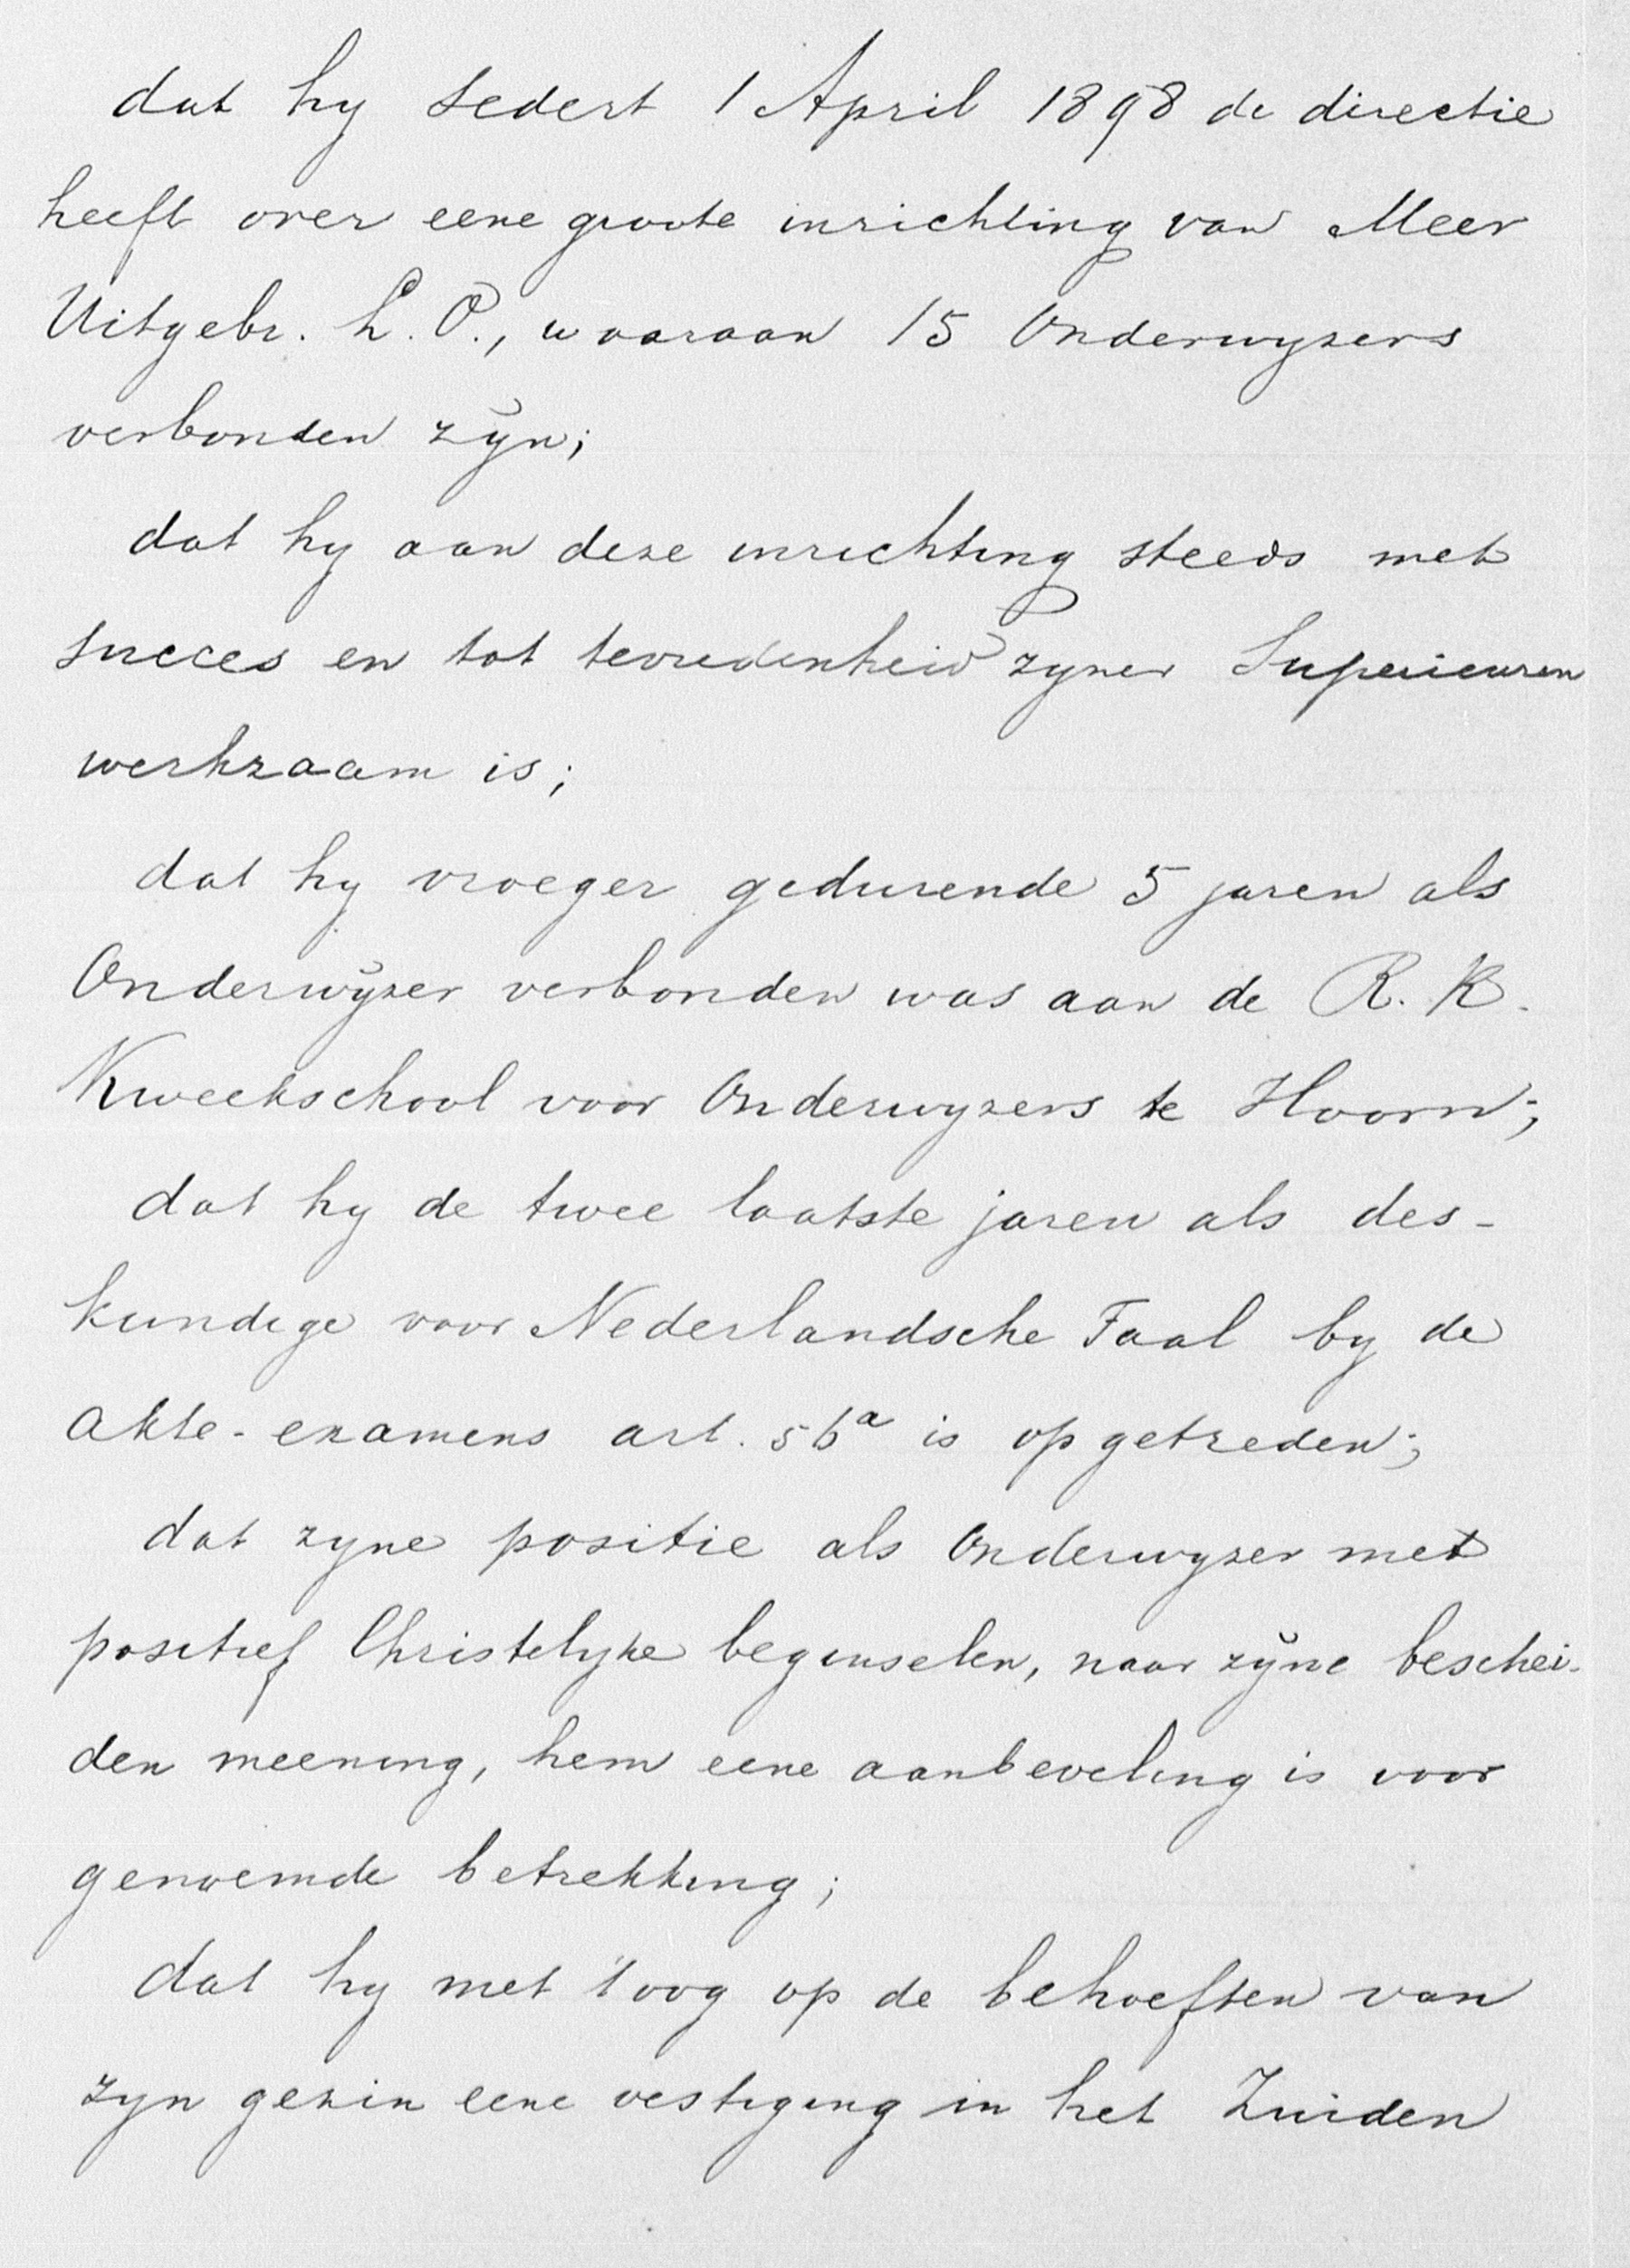 dat hy sedert 1 April 1898 de directie
heeft over eene groote inrichting van Meer
Uitgebr. L. O., waaraan 15 Onderwyzers
verbonden zyn;
dat hy aan deze inrichting steeds met
succes en tot tevredenheid zyner Superieuren
werkzaam is;
dat hy vroeger gedurende 5 jaren als
Onderwyzer verbonden was aan de R. K.
Kweekschool voor Onderwyzers te Hoorn;
dat hy de twee laatste jaren als des-
kundige voor Nederlandsche Taal by de
akte-examens art. 56a is opgetreden;
dat zyne positie als Onderwyzer met
positief Christelyke beginselen, naar zyne beschei-
den meening, hem eene aanbeveling is voor
genoemde betrekking;
dat hy met 't oog op de behoeften van
zyn gezin eene vestiging in het Zuiden